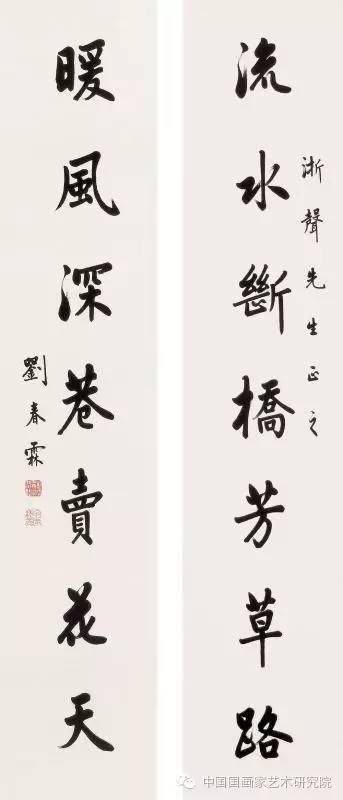 流水斷橋芳草路
浙聲先生正之
暖風深巷賣花天
劉春霖
中国国画家艺术研究院